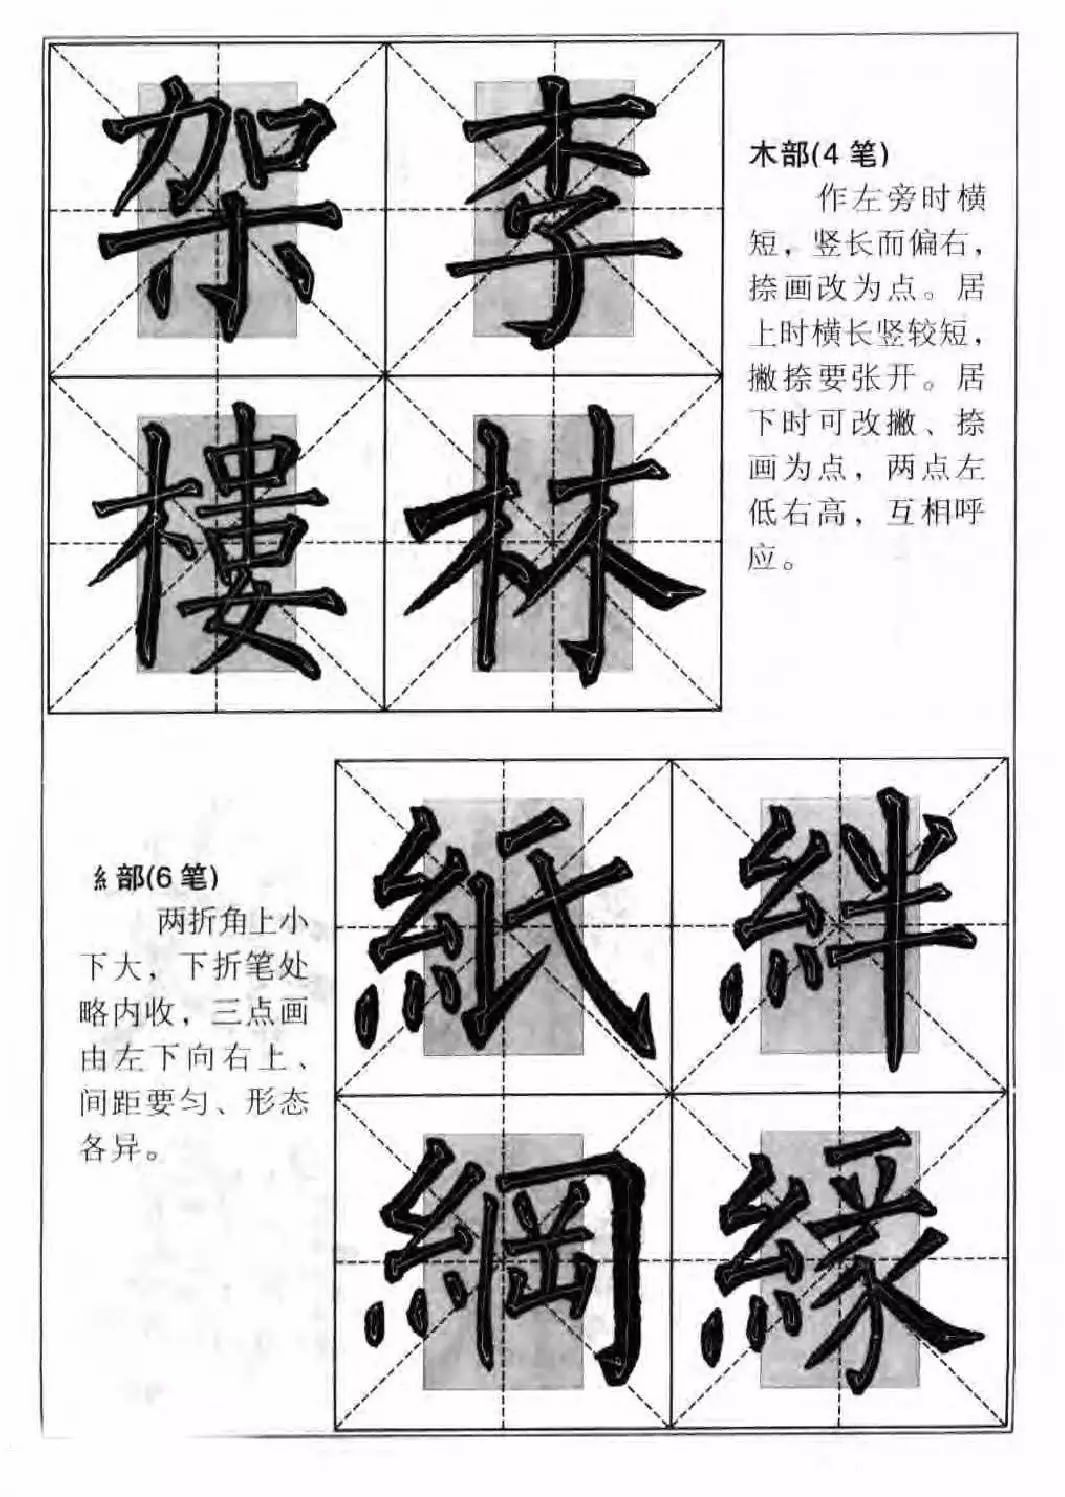 架李
木部(4 笔)
作左旁时横
短，竖长而偏右，
捺画改为点。居
上时横长竖较短，
撇捺要张开。居
下时可改撇、捺
画为点，两点左
低右高，互相呼
应。
樓林
紙絆
糹部(6 笔)
两折角上小
下大，下折笔处
略内收，三点画
由左下向右上、
间距要匀、形态
各异。
綱緣